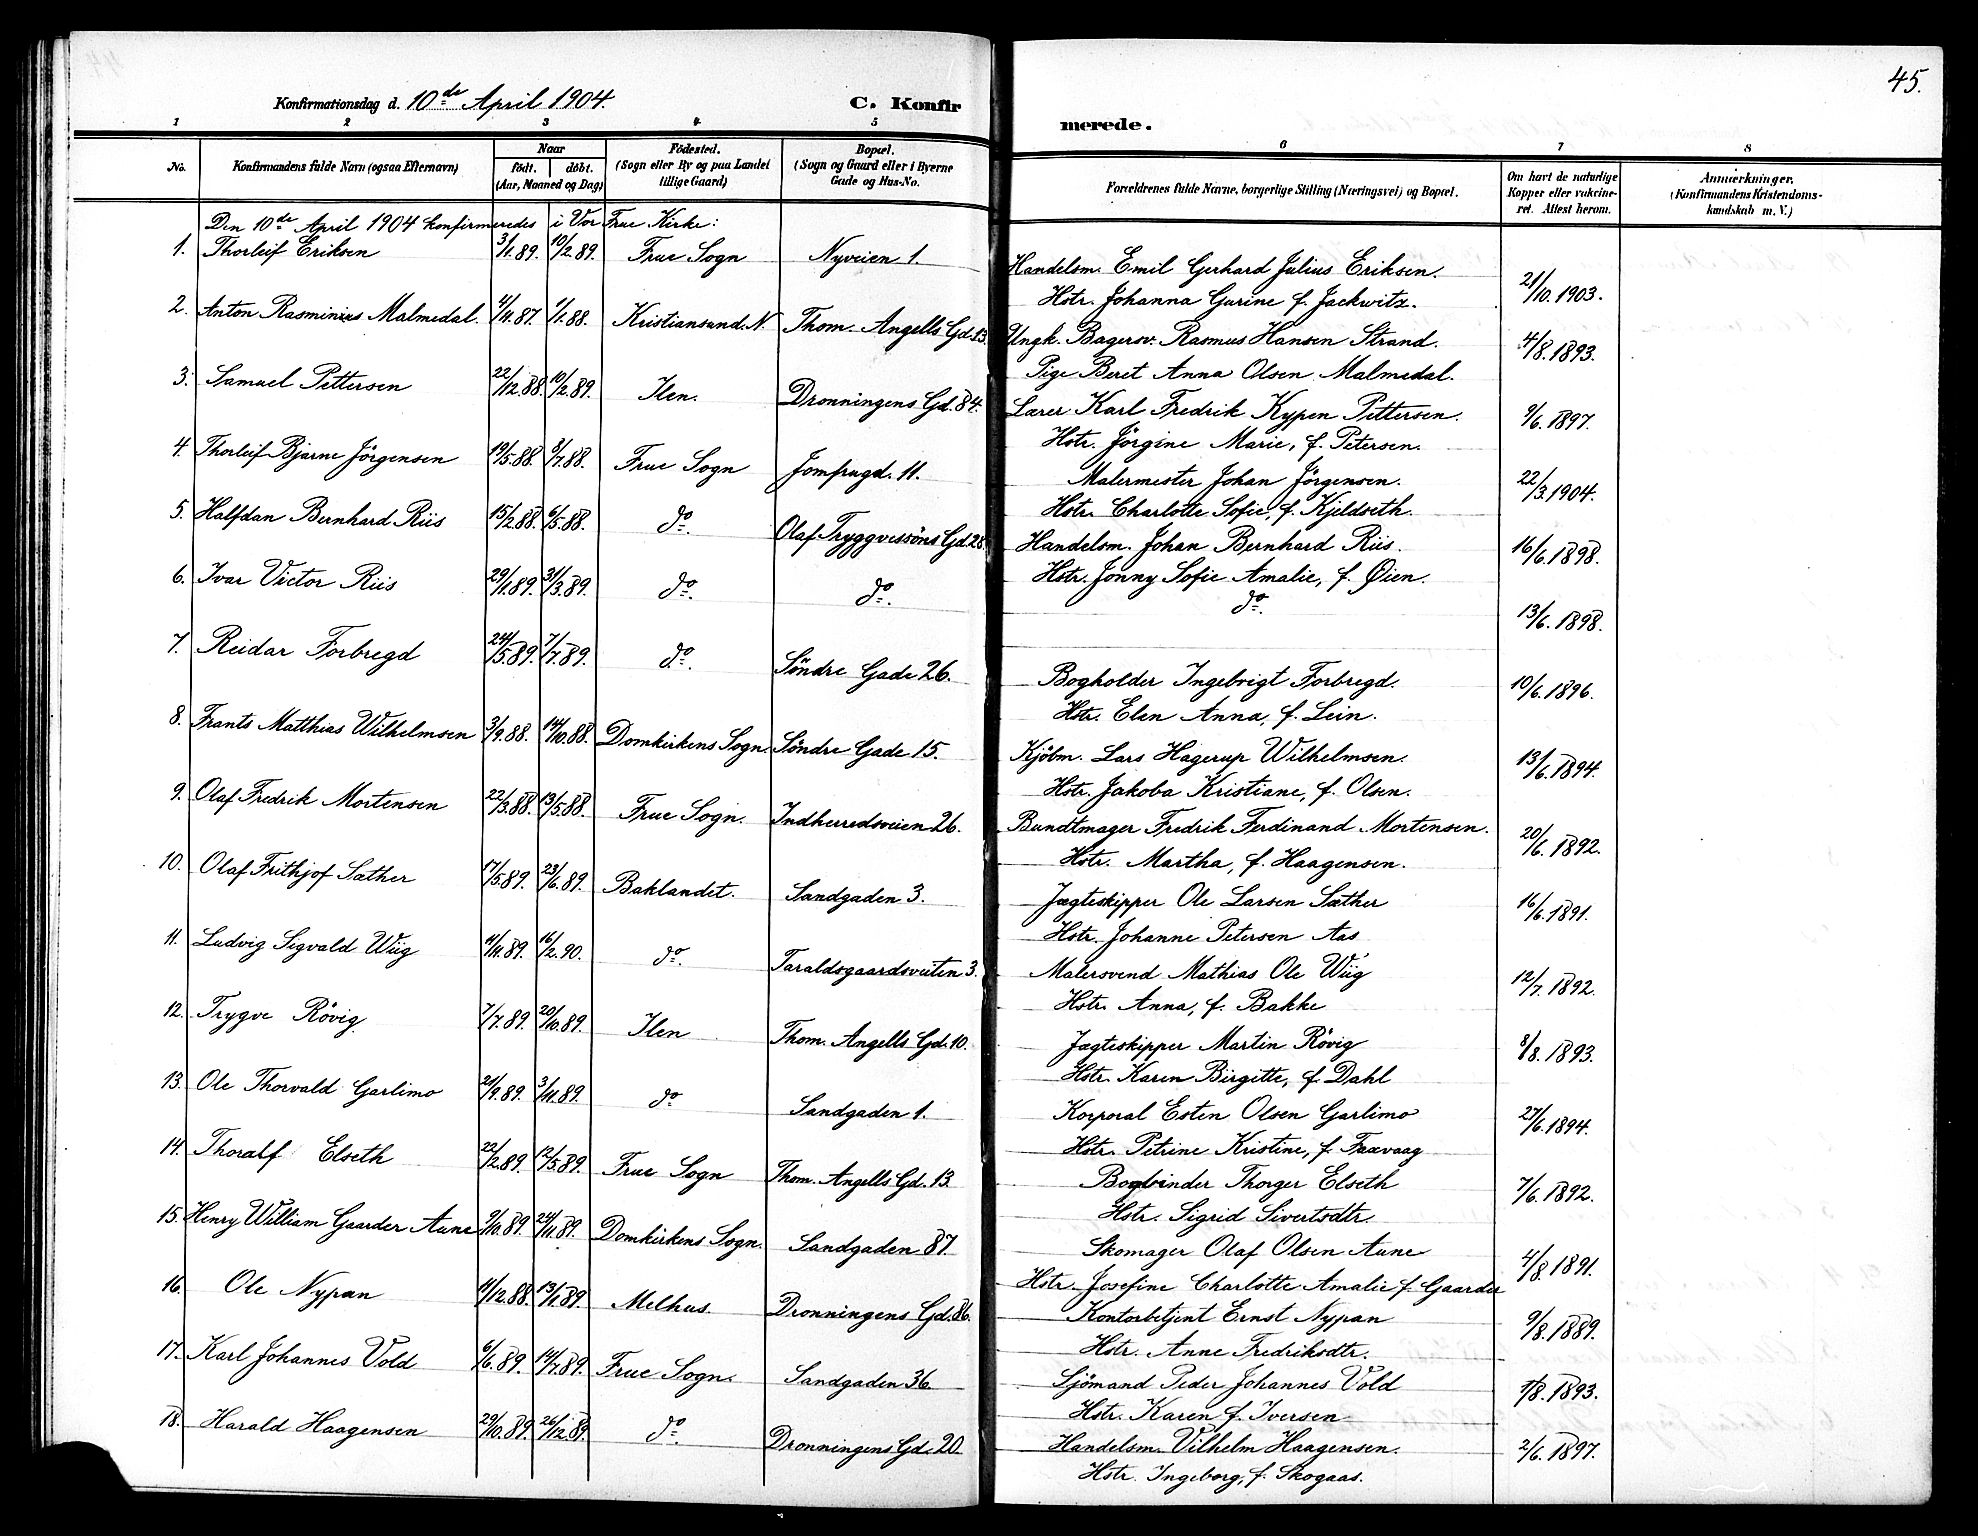 45.
Konfirmationsdag d. 10de April 1904.
C. Konfirmerede.
1 2 3 4 5 6 7 8
No. Konfirmandens fulde Navn (ogsaa Efternavn) Naar født. døbt. (Aar, Maaned og Dag) Fødested. (Sogn eller By og paa Landet tillige Gaard) Bopæl. (Sogn og Gaard eller i Byerne Gade og Hus-No. Forældrenes fulde Navne, borgerlige Stilling (Næringsvei) og Bopæl. Om havt de naturlige Kopper eller vakcineret. Attest herom. Anmærkninger. (Konfirmandens Kristendomskundskab m. V.)
Den 10de April 1904 konfirmeredes i Vor Frue Kirke:
1. Thorleif Eriksen 3/1.89. 10/2.89. Frue Sogn Nyveien 1. Handelsm. Emil Gerhard Julius Eriksen. 21/10.1903.
Hstr. Johanna Gurine f. Jackwitz.
2. Anton Rasminius Malmedal. 4/11.87. 1/1.88. Kristiansund. N. Thom. Angells Gd. 13. Ungk. Bagersv. Rasmus Hansen Strand. 4/8.1893.
Pige Beret Anna Olsen Malmedal.
3. Samuel Pettersen 22/12.88. 10/2.89. Ilen. Dronningens Gd. 84. Lærer Karl Fredrik Kypen Pettersen. 9/6.1897.
Hstr. Jörgine Marie, f. Petersen.
4. Thorleif Bjarne Jörgensen 19/5.88. 8/7.88. Frue Sogn Jomfrugd. 11. Malermester Johan Jörgensen. 22/3.1904.
Hstr. Charlotte Sofie, f. Kjeldseth.
5. Halfdan Bernhard Riis 15/2.88. 6/5.88. do. Olaf Tryggvessöns Gd. 28. Handelsm. Johan Bernhard Riis. 16/6.1898.
Hstr. Jonny Sofie Amalie, f. Øien.
6. Ivar Victor Riis 29/1.89. 31/3.89. do. do. do. 13/6.1898.
7. Reidar Forbregd 24/5.89. 7/7.89. do. Söndre Gade 26. Bogholder Ingebrigt Forbregd. 10/6.1896.
Hstr. Elen Anna, f. Lein.
8. Frants Matthias Wilhelmsen 3/9.88. 14/10.88. Domkirkens Sogn. Söndre Gade 15. Kjöbm. Lars Hagerup Wilhelmsen. 13/6.1894.
Hstr. Jakoba Kristiane, f. Olsen.
9. Olaf Fredrik Mortensen 22/3.88. 13/5.88. Frue Sogn. Indherredsveien 26. Bundtmager Fredrik Ferdinand Mortensen. 20/6.1892.
Hstr. Martha, f. Haagensen.
10. Olaf Frithjof Sæther 17/5.89. 23/6.89. Baklandet. Sandgaden 3. Jægteskipper Ole Larsen Sæther 16/6.1891.
Hstr. Johanne Petersen Aas
11. Ludvig Sigvald Wiig 11/11.89. 16/2.90. do. Taraldsgaardsveiten 3. Malersvend Mathias Ole Wiig 12/7.1892.
Hstr. Anna, f. Bakke
12. Trygve Rövig. 7/7.89. 20/10.89. Ilen Thom. Angells Gd. 10. Jægteskipper Martin Rövig 8/8.1893.
Hstr. Karen Birgitte, f. Dahl
13. Ole Thorvald Garlimo 21/9.89. 3/11.89. do Sandgaden 1. Korporal Esten Olsen Garlimo 27/6.1894.
Hstr. Petrine Kristine, f. Faxvaag
14. Thoralf Elseth 22/2.89. 12/5.89. Frue Sogn Thom. Angells Gd. 13. Bogbinder Thorger Elseth 7/6.1892.
Hstr. Sigrid Sivertsdtr.
15. Henry William Gaarder Aune 9/10.89. 24/11.89. Domkirkens Sogn. Sandgaden 87. Skomager Olaf Olsen Aune 4/8.1891.
Hstr. Josefine Charlotte Amalie f. Gaarder
16. Ole Nypan 11/12.88. 13/1.89. Melhus. Dronningens Gd. 86. Kontorbetjent Ernst Nypan 9/8.1889.
Hstr. Anne Fredriksdtr.
17. Karl Johannes Vold 6/6.89. 14/7.89. Frue Sogn. Sandgaden 36. Sjömand Peder Johannes Vold 1/8.1893.
Hstr. Karen f. Iversen
18. Harald Haagensen 29/10.89. 26/12.89. do. Dronningens Gd. 20. Handelsm. Vilhelm Haagensen. 2/6.1897.
Hstr. Ingeborg, f. Skogaas.